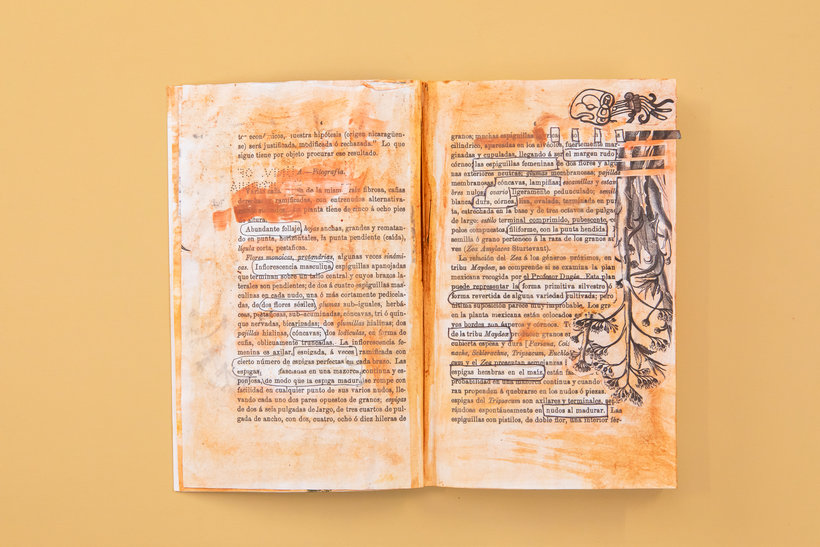 nuestra hipótesis (origen nicaragüen-
se) será justificada, modificada ó rechazada." Lo que
sigue tiene por objeto procurar ese resultado.
A—Filografía.
Varias de la misma raíz fibrosa, cañas
ramificadas, con entrenudos alternativa-
planta tiene de cinco á ocho pies
altura.
Abundante follaje, hojas anchas, grandes y rematan-
do en punta, horizontales, la punta pendiente (caída),
lígula corta, pestañosa.
Flores monoicas, protandrias, algunas veces
Inflorescencia masculina espiguillas apanojadas
que terminan sobre un tallo central y cuyos brazos la-
terales son pendientes; de dos á cuatro espiguillas mas-
culinas en cada nudo, una ó más cortamente pedicela-
das, de dos flores sésiles, glumas sub-iguales, herbá-
ceas, pestañosas, sub-acuminadas, cóncavas, tri ó quin-
que nervadas, bicarizadas; dos glumillas hialinas; dos
pajillas hialinas, cóncavas; dos lodículas, en forma de
cuña, oblicuamente truncadas. La inflorescencia fe-
menina es axilar, espigada, á veces ramificada con
cierto número de espigas perfectas en cada brazo. Las
espigas fasciadas en una mazorca continua y es-
ponjosa, de modo que la espiga madura se rompe con
facilidad en cualquier punto de sus varios nudos, lle-
vando cada uno dos pares opuestos de granos; espigas
de dos á seis pulgadas de largo, de tres cuartos de pul-
gada de ancho, con dos, cuatro, ochó ó diez hileras de
granos; muchas espiguillas
cilíndrico, apareadas en los alvéolos, fuertemente mar-
ginadas y cupuladas, llegando á ser el margen rudo
córneo; las espiguillas femeninas de dos flores y algu-
nas exteriores neutras; glumas membranosas; pajillas
membranosas, cóncavas, lampiñas; escamillas y estam-
bres nulos; ovario ligeramente pedunculado; semilla
blanca, dura, córnea, lisa, ovalada, terminada en pun-
ta, estrechada en la base y de tres octavos de pulga
de largo; estilo terminal comprimido, pubescente,
pelos compuestos, filiforme, con la punta hendida
semilla ó grano pertenece á la raza de los granos
ves (Zea Amylacea Sturtevant).
La relación del Zea á los géneros próximos, en
tribu Maydea, se comprende si se examina la plan
mexicana recogida por el Profesor Dugés. Esta plan
puede representar la forma primitiva silvestre ó
forma revertida de alguna variedad cultivada; pero
última suposición parece muy improbable. Los gra
en la planta mexicana están colocados
vos bordes son ásperos y córneos.
de la tribu Maydea producen granos
cubierta espesa y dura [Pariana,
nache, Schlerachne, Tripsacum,
cum y el Zea presentan semejanzas
espigas hembras en el maíz, están
probabilidad en una mazorca continua y cuando
ran propenden á quebrarse en los nudos ó piezas.
espigas del Tripsacum son axilares y terminales,
rándose espontáneamente en nudos al madurar. Las
espiguillas con pistilos, de doble flor, una inferior